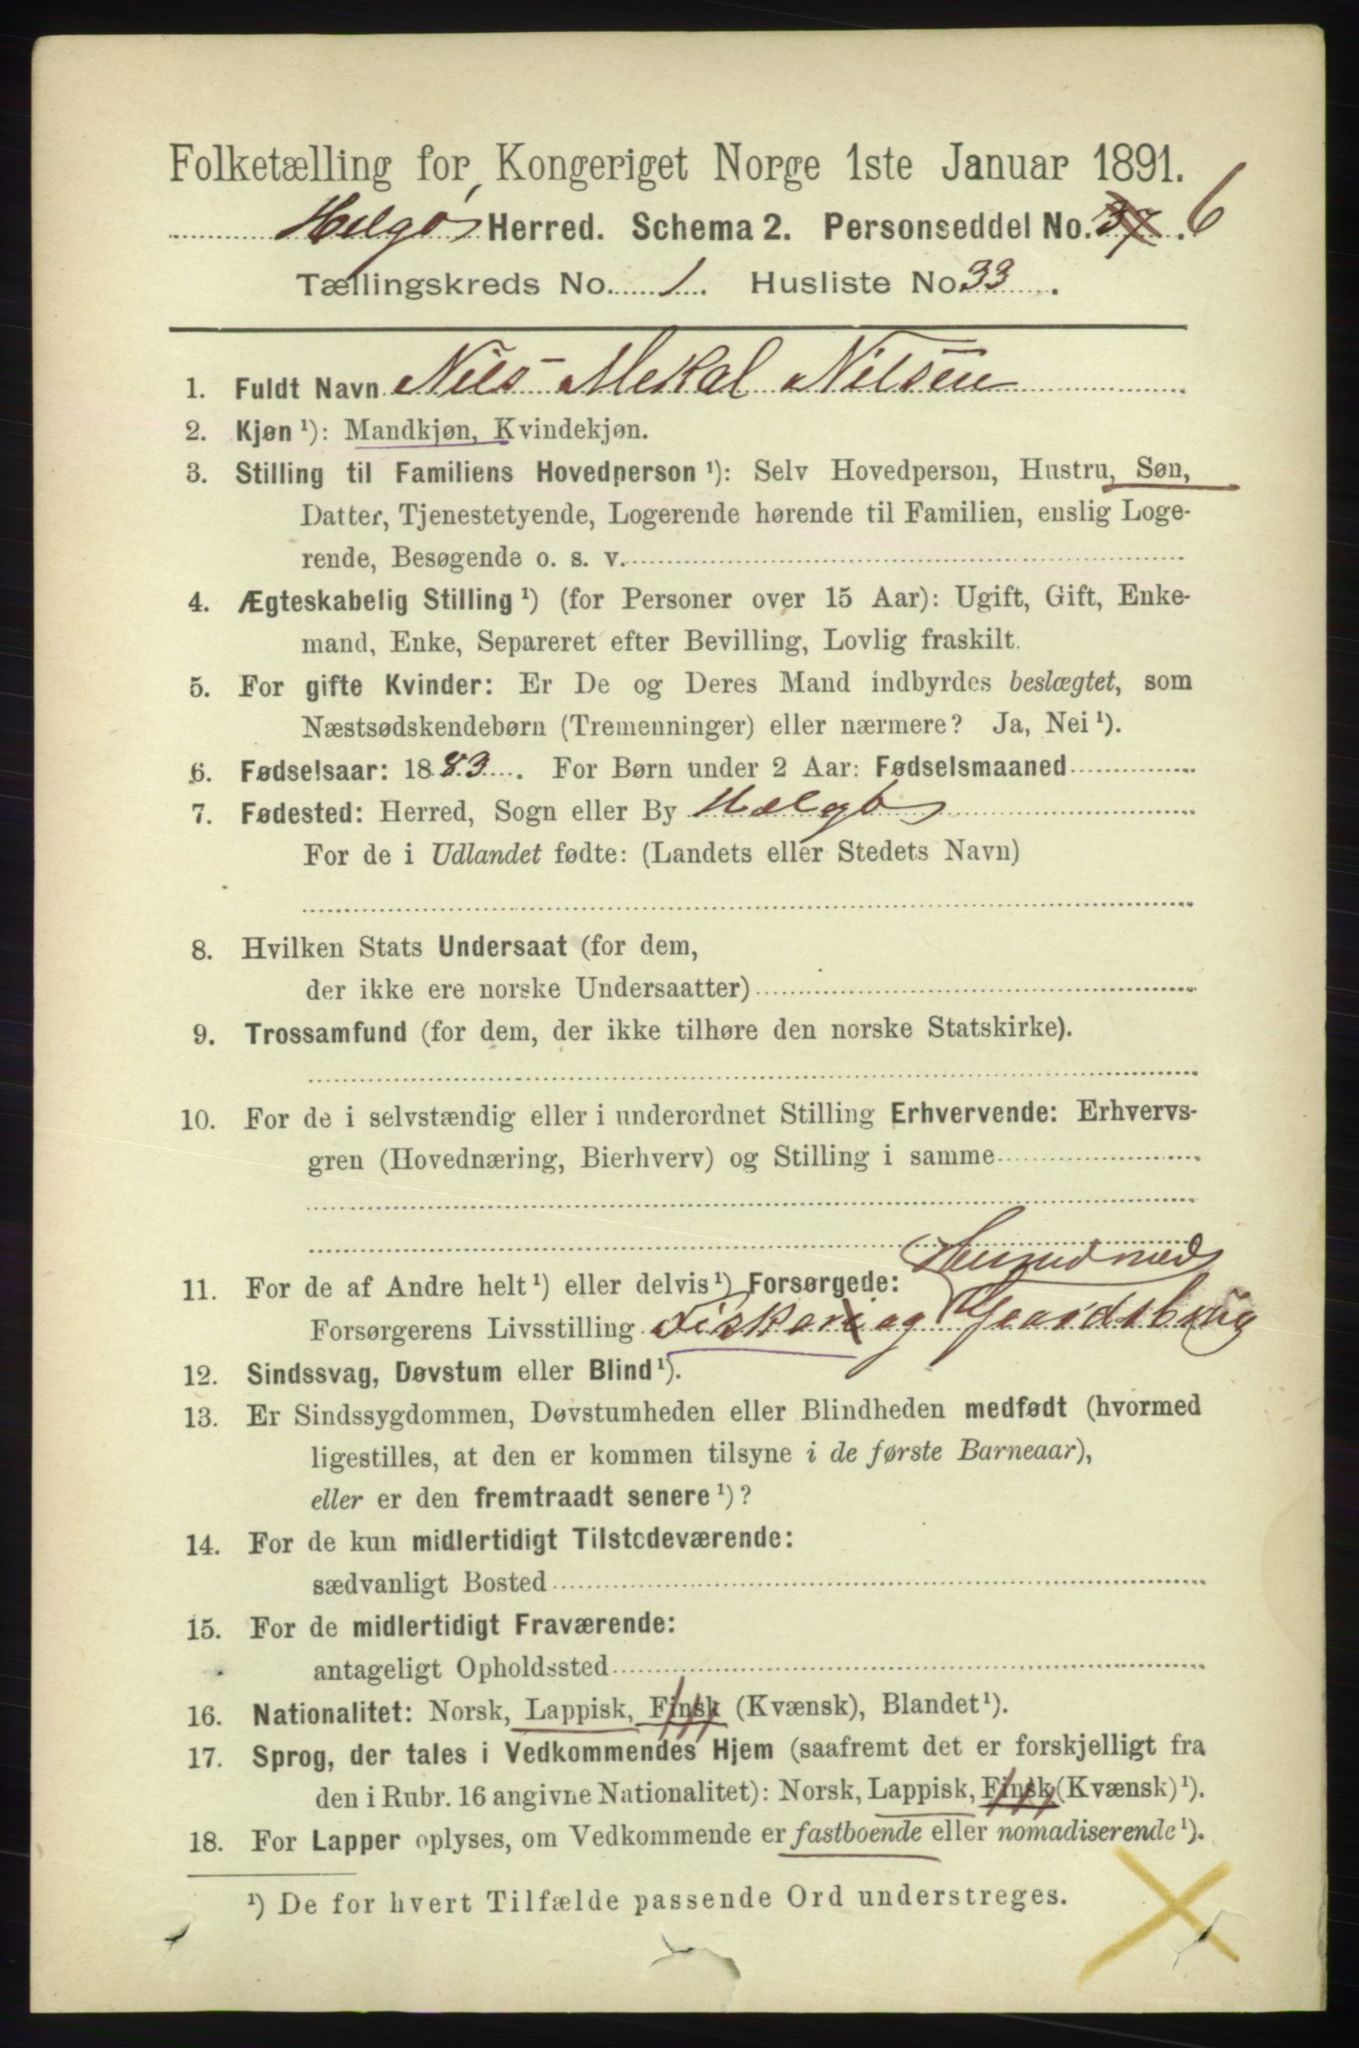 Folketælling for Kongeriget Norge 1ste Januar 1891.
Helgø Herred. Schema 2. Personseddel No. 37. 6
Tællingskreds No. 1. Husliste No 33.
1. Fuldt Navn Nils Mekal Nilsen
2. Kjøn ¹): Mandkjøn, Kvindekjøn.
3. Stilling til Familiens Hovedperson ¹): Selv Hovedperson, Hustru, Søn,
Datter, Tjenestetyende, Logerende hørende til Familien, enslig Loge-
rende, Besøgende o. s. v.
4. Ægteskabelig Stilling ¹) (for Personer over 15 Aar): Ugift, Gift, Enke-
mand, Enke, Separeret efter Bevilling, Lovlig fraskilt.
5. For gifte Kvinder: Er De og Deres Mand indbyrdes beslægtet, som
Næstsødskendebørn (Tremenninger) eller nærmere? Ja, Nei ¹).
6. Fødselsaar: 1883. For Børn under 2 Aar: Fødselsmaaned
7. Fødested: Herred, Sogn eller By Helgø
For de i Udlandet fødte: (Landets eller Stedets Navn)
8. Hvilken Stats Undersaat (for dem,
der ikke ere norske Undersaatter)
9. Trossamfund (for dem, der ikke tilhøre den norske Statskirke).
10. For de i selvstændig eller i underordnet Stilling Erhvervende: Erhvervs-
gren (Hovednæring, Bierhverv) og Stilling i samme
11. For de af Andre helt ¹) eller delvis ¹) Forsørgede:
Forsørgerens Livsstilling Fiskeri og Gaardsbrug
12. Sindssvag, Døvstum eller Blind ¹).
13. Er Sindssygdommen, Døvstumheden eller Blindheden medfødt (hvormed
ligestilles, at den er kommen tilsyne i de første Barneaar),
eller er den fremtraadt senere ¹)?
14. For de kun midlertidigt Tilstedeværende:
sædvanligt Bosted
15. For de midlertidigt Fraværende:
antageligt Opholdssted
16. Nationalitet: Norsk, Lappisk, Finsk (Kvænsk), Blandet ¹).
17. Sprog, der tales i Vedkommendes Hjem (saafremt det er forskjelligt fra
den i Rubr. 16 angivne Nationalitet): Norsk, Lappisk, Finsk (Kvænsk) ¹).
18. For Lapper oplyses, om Vedkommende er fastboende eller nomadiserende ¹).
¹) De for hvert Tilfælde passende Ord understreges.